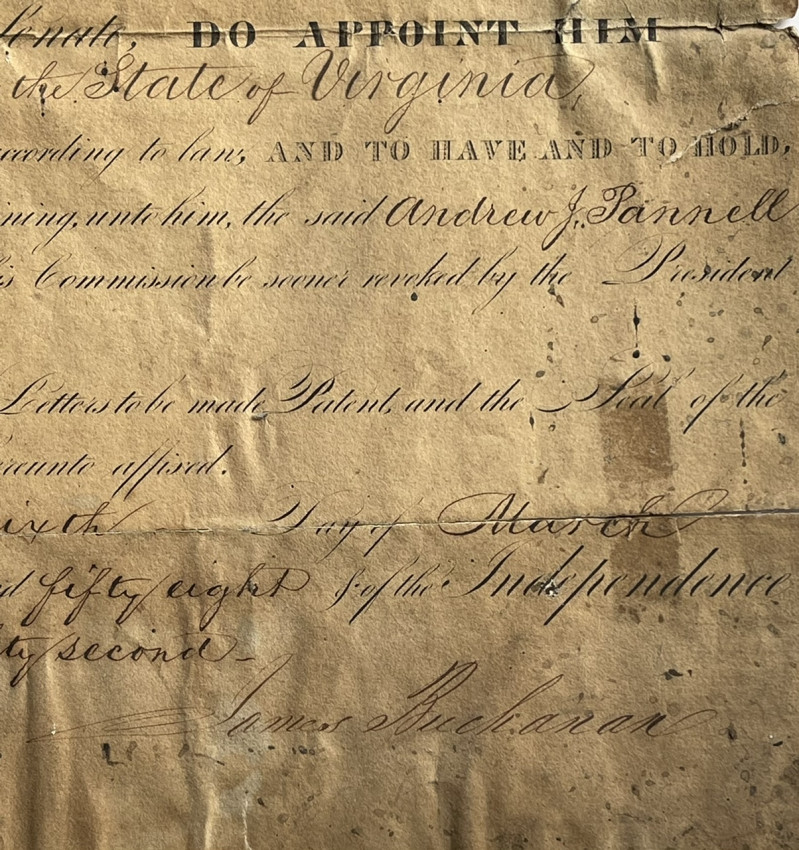 Senate, DO APPOINT HIM
the State of Virginia,
according to law, AND TO HAVE AND TO HOLD,
ning, unto him, the said Andrew J. Pannell
is Commission be sooner revoked by the President
Letters to be made Patent, and the Seal of the
reunto affixed.
ixth Day of March
d fifty eight & of the Independence
ty second
James Buchanan